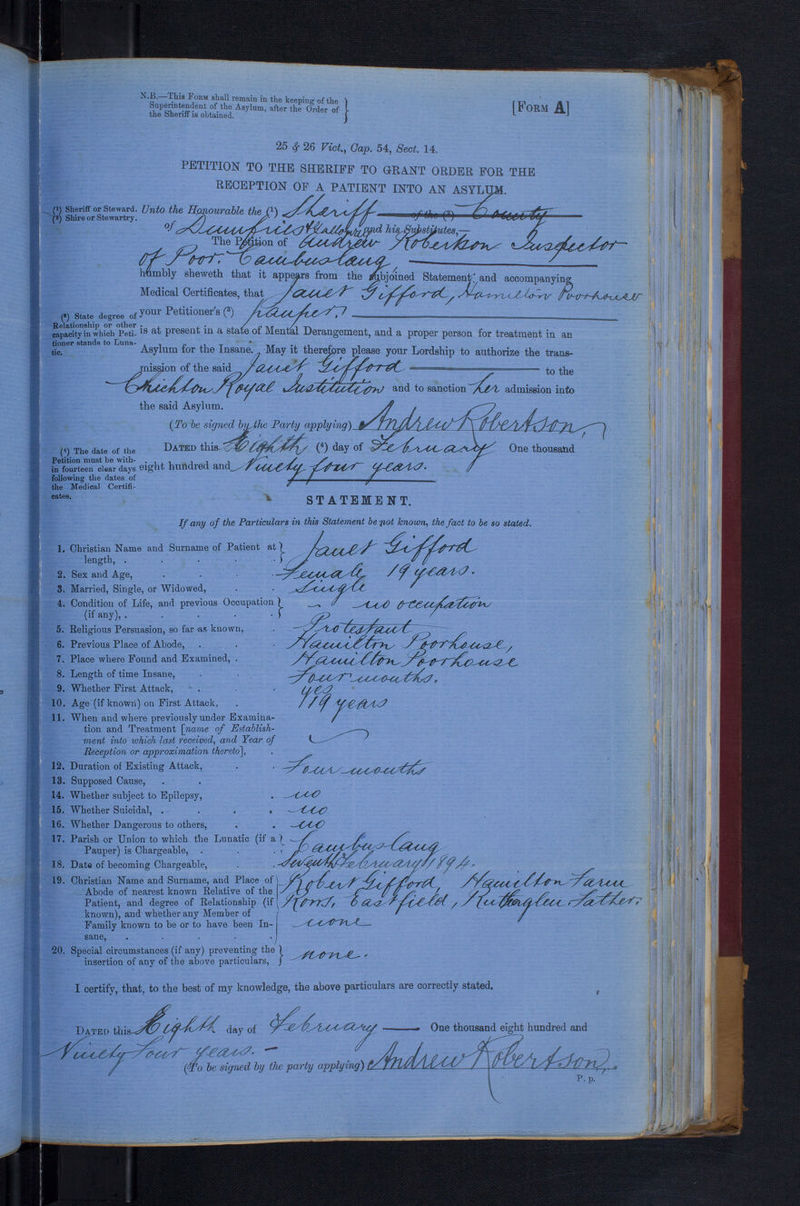 N.B.—This Form shall remain in the keeping of the
Superintendent of the Asylum, after the Order of
the Sheriff is obtained.
[Form A]
25 & 26 Vict., Cap. 54, Sect. 14.
PETITION TO THE SHERIFF TO GRANT ORDER FOR THE
RECEPTION OF A PATIENT INTO AN ASYLUM.
(1) Sheriff or Steward.
(2) Shire or Stewartry.
Unto the Honourable the (1) Sheriff of the (2) County
of Dumfries & Galloway and his Substitutes,—
The Petition of Andrew Robertson Inspector
of Poor. Cambuslang
humbly sheweth that it appears from the subjoined Statement and accompanying
Medical Certificates, that Janet Gifford, Hamilton Poorhouse
(3) State degree of
Relationship or other
capacity in which Peti-
tioner stands to Luna-
tic.
your Petitioner's (3) pauper,
is at present in a state of Mental Derangement, and a proper person for treatment in an
Asylum for the Insane. May it therefore please your Lordship to authorize the trans-
mission of the said Janet Gifford to the
Crichton Royal Institution and to sanction her admission into
the said Asylum.
(To be signed by the Party applying) Andrew Robertson,
(4) The date of the
Petition must be with-
in fourteen clear days
following the dates of
the Medical Certifi-
cates.
Dated this Eighth (4) day of February One thousand
eight hundred and Ninety four years.
STATEMENT.
If any of the Particulars in this Statement be not known, the fact to be so stated.
1. Christian Name and Surname of Patient at length, . Janet Gifford
2. Sex and Age, Female 19 years.
3. Married, Single, or Widowed, Single
4. Condition of Life, and previous Occupation (if any), . no occupation
5. Religious Persuasion, so far as known, Protestant
6. Previous Place of Abode, Hamilton Poorhouse,
7. Place where Found and Examined, . Hamilton Poorhouse
8. Length of time Insane, Four months.
9. Whether First Attack, yes
10. Age (if known) on First Attack, 19 years
11. When and where previously under Examina-
tion and Treatment [name of Establish-
ment into which last received, and Year of
Reception or approximation thereto],
12. Duration of Existing Attack, Four months
13. Supposed Cause,
14. Whether subject to Epilepsy, no
15. Whether Suicidal, . no
16. Whether Dangerous to others, no
17. Parish or Union to which the Lunatic (if a Pauper) is Chargeable, . Cambuslang
18. Date of becoming Chargeable, Seventh February 1894.
19. Christian Name and Surname, and Place of
Abode of nearest known Relative of the
Patient, and degree of Relationship (if
known), and whether any Member of
Family known to be or to have been In-
sane,
Robert Gifford, Hamilton Farm
Rows, Eastfield, Rutherglen Father.
none
20. Special circumstances (if any) preventing the
insertion of any of the above particulars,
none.
I certify, that, to the best of my knowledge, the above particulars are correctly stated.
Dated this Eighth day of February One thousand eight hundred and
Ninety Four years.
(To be signed by the party applying) Andrew Robertson,
P. p.